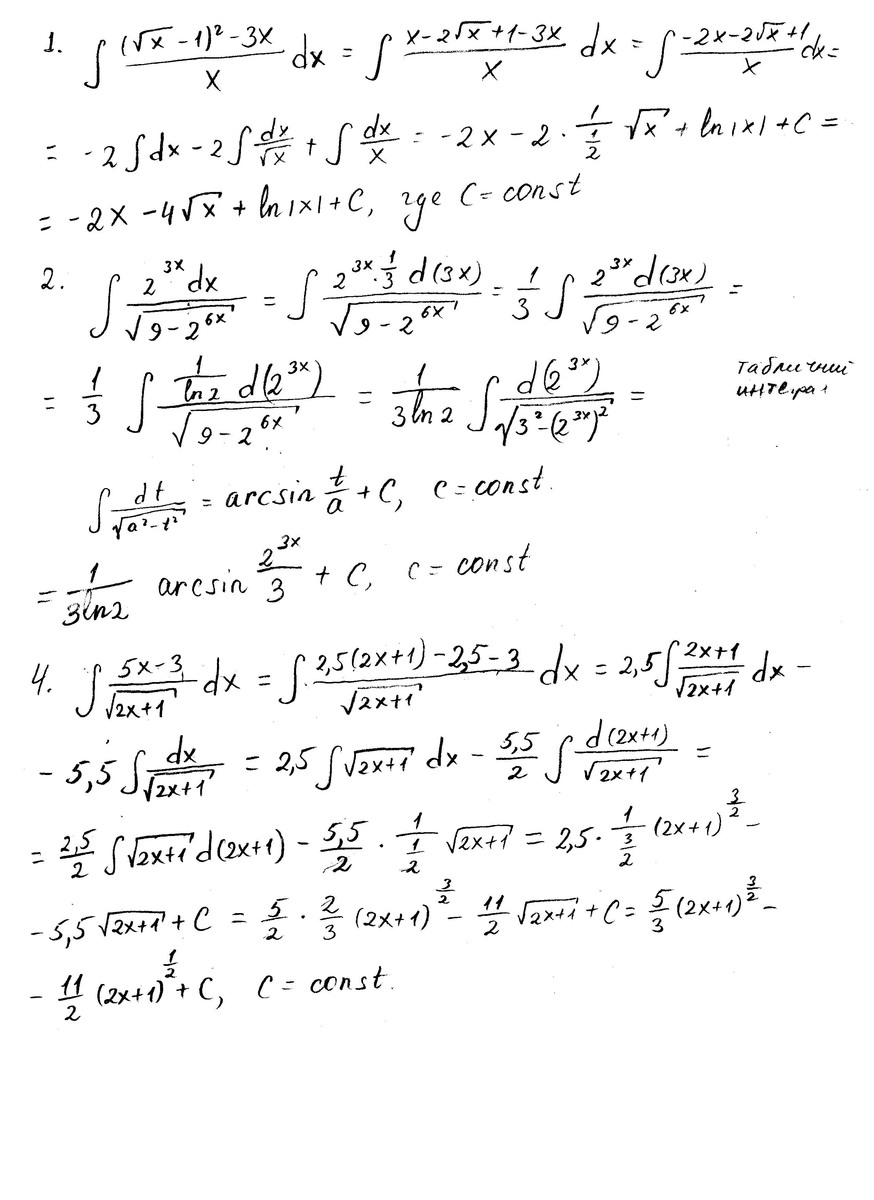 1. ∫ ((√x - 1)² - 3x)/x dx = ∫ (x - 2√x + 1 - 3x)/x dx = ∫ (-2x - 2√x + 1)/x dx =
= -2∫dx - 2∫ dx/√x + ∫ dx/x = -2x - 2 · 1/(1/2) √x + ln|x| + C =
= -2x - 4√x + ln|x| + C, где C = const
2. ∫ 2^(3x) dx/√(9 - 2^(6x)) = ∫ (2^(3x) · 1/3 d(3x))/√(9 - 2^(6x)) = 1/3 ∫ 2^(3x) d(3x)/√(9 - 2^(6x)) =
= 1/3 ∫ (1/ln2 d(2^(3x)))/√(9 - 2^(6x)) = 1/(3ln2) ∫ d(2^(3x))/√(3² - (2^(3x))²) =
табличний
интеграл
∫ dt/√(a² - t²) = arcsin t/a + C, c = const.
= 1/(3ln2) arcsin 2^(3x)/3 + C, c = const
4. ∫ (5x - 3)/√(2x+1) dx = ∫ (2,5(2x+1) - 2,5 - 3)/√(2x+1) dx = 2,5∫ (2x+1)/√(2x+1) dx -
- 5,5 ∫ dx/√(2x+1) = 2,5 ∫√(2x+1) dx - 5,5/2 ∫ d(2x+1)/√(2x+1) =
= 2,5/2 ∫√(2x+1) d(2x+1) - 5,5/2 · 1/(1/2) √(2x+1) = 2,5 · 1/(3/2) (2x+1)^(3/2) -
- 5,5√(2x+1) + C = 5/2 · 2/3 (2x+1)^(3/2) - 11/2 √(2x+1) + C = 5/3 (2x+1)^(3/2) -
- 11/2 (2x+1)^(1/2) + C, C = const.